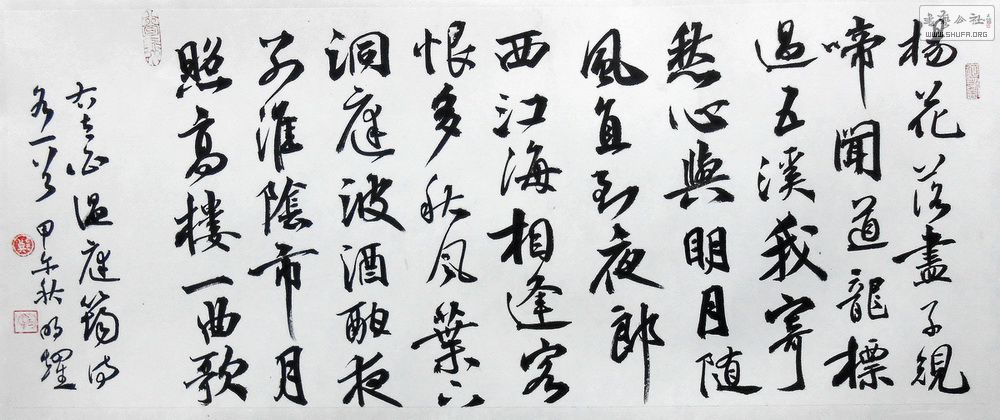 楊花落盡子規
啼聞道龍標
過五溪我寄
愁心與明月隨
風直到夜郎
西江海相逢客
恨多秋風葉下
洞庭波酒酣夜
別淮陰市月
照高樓一曲歌
右太白溫庭筠詩
各一首 甲午秋明耀
公社
WWW.SHUFA.ORG